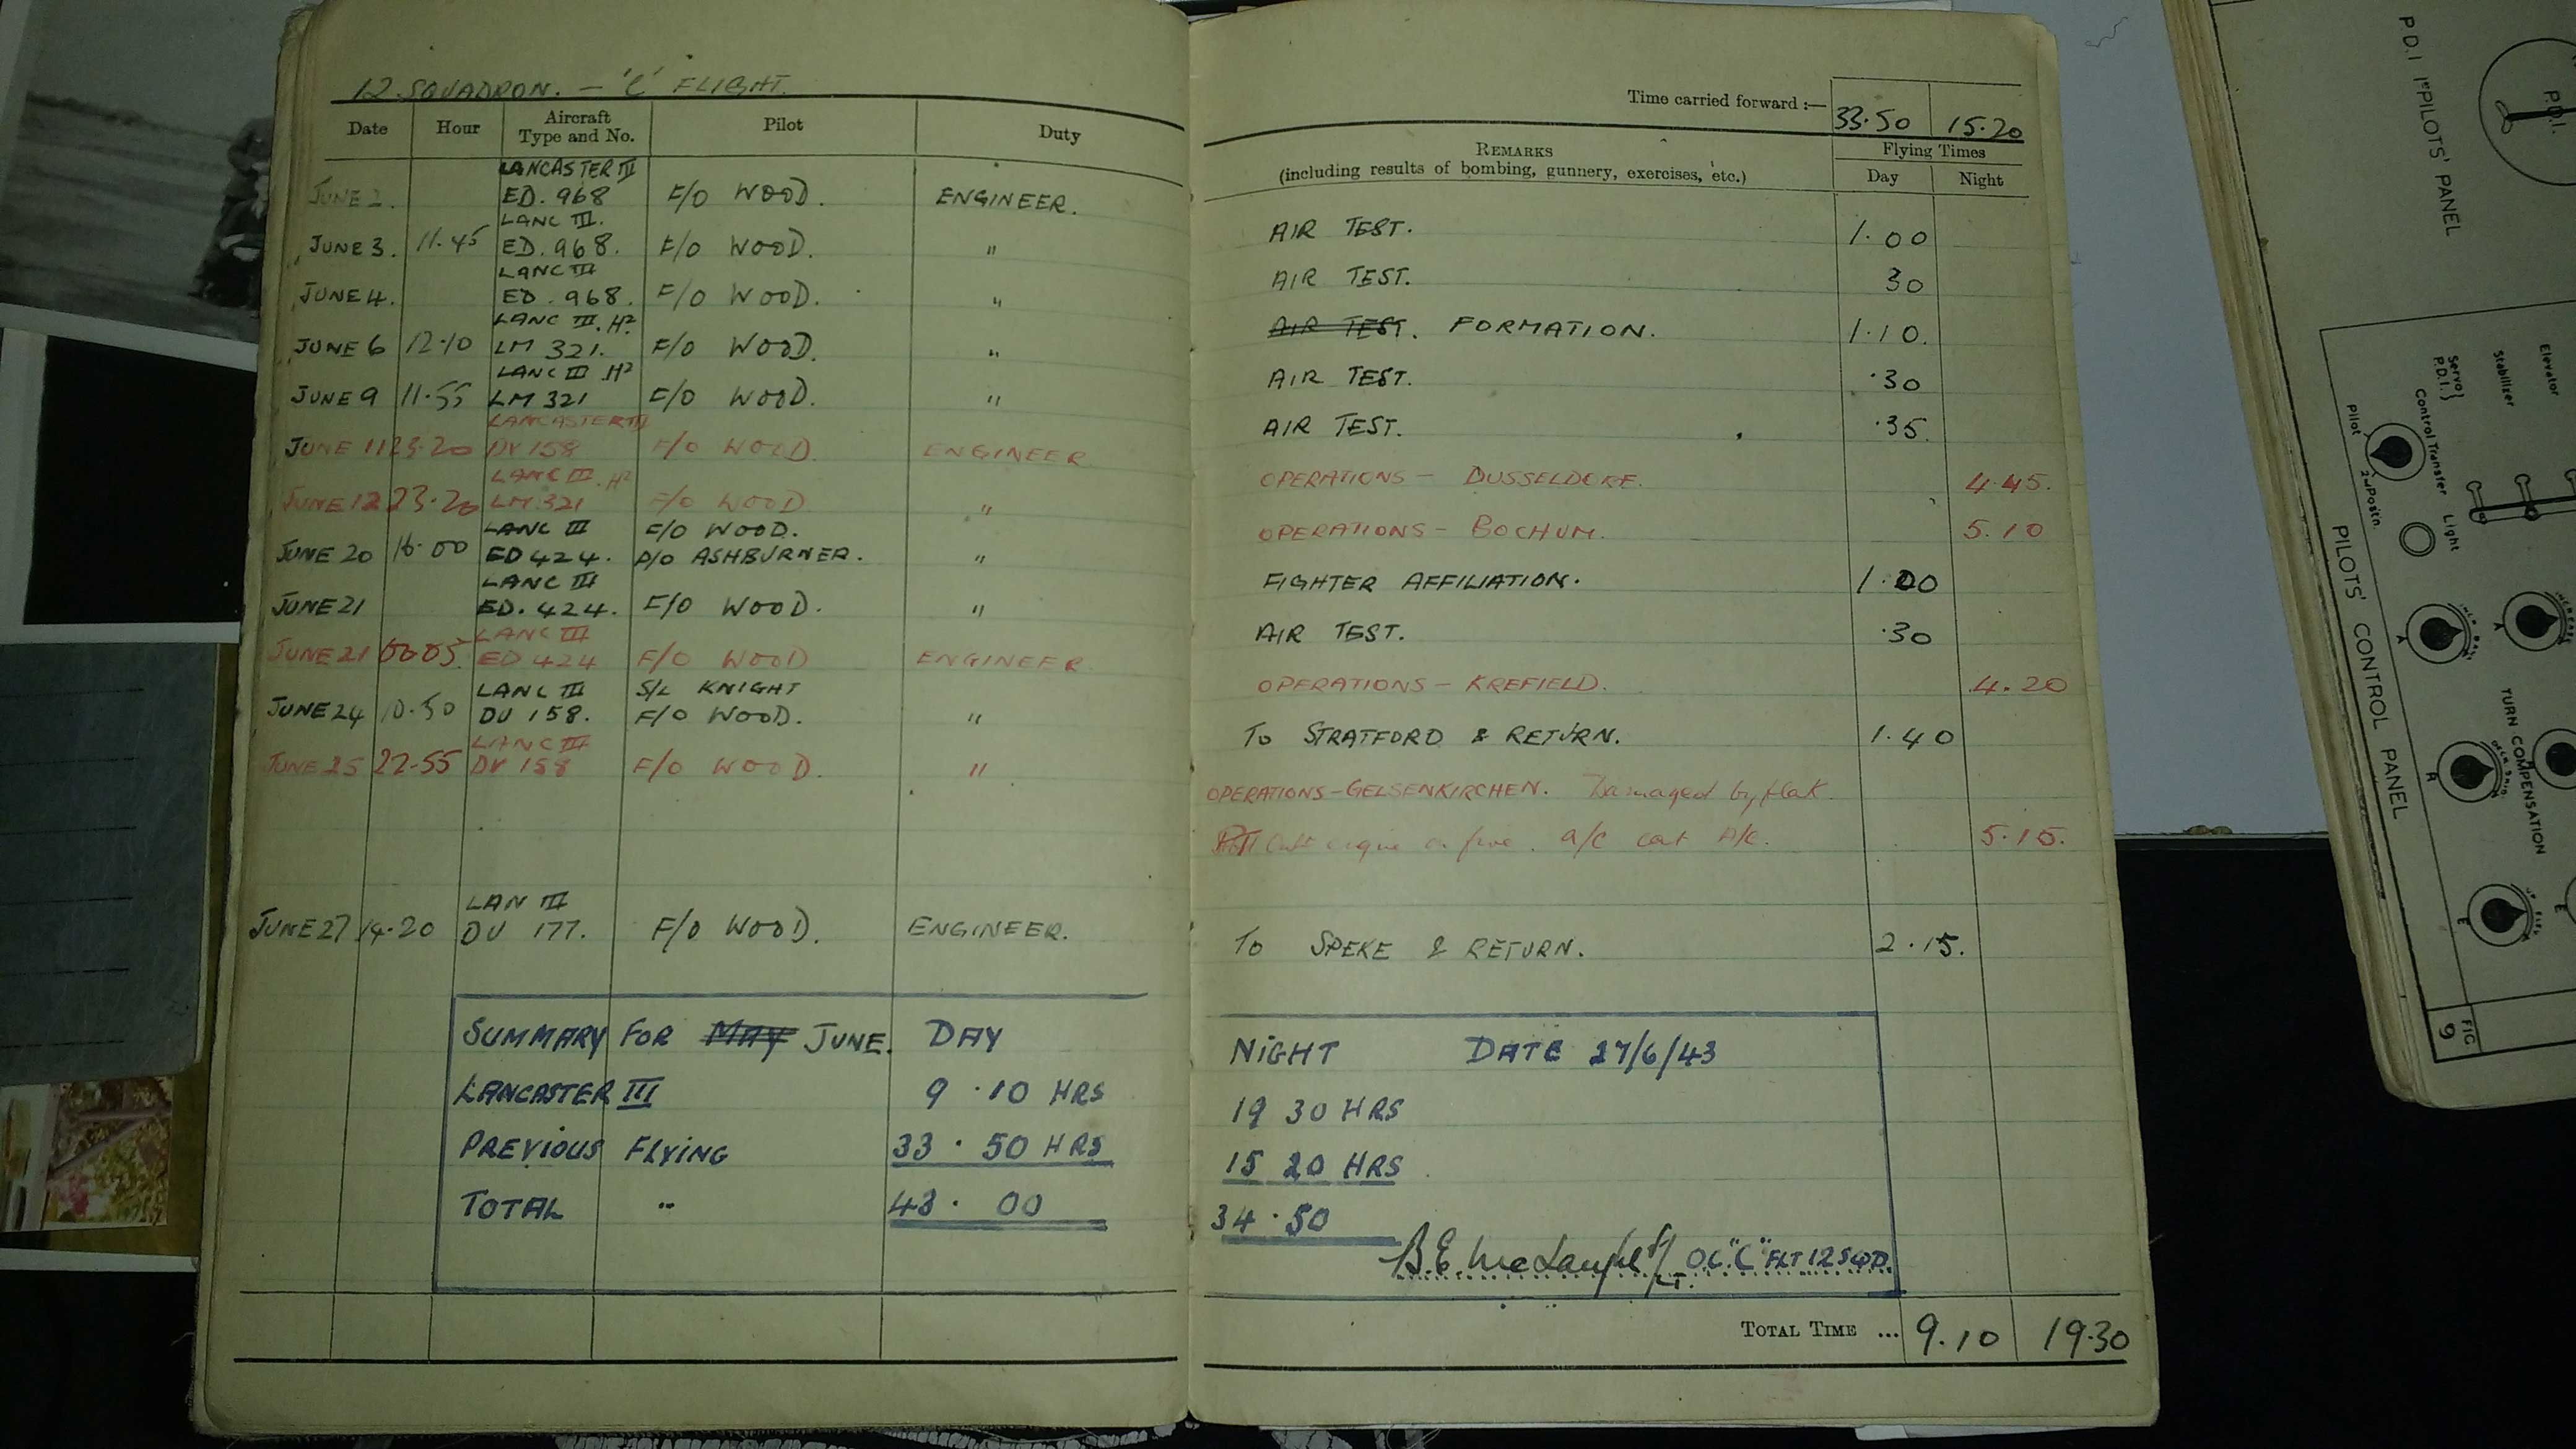 12 SQUADRON. — 'C' FLIGHT.
Date Hour Aircraft Type and No. Pilot Duty
LANCASTER III
JUNE 2. ED. 968 F/O WOOD. ENGINEER.
LANC III.
JUNE 3. 11.45 ED. 968. F/O WOOD. "
LANC III
JUNE 4. ED. 968. F/O WOOD. "
LANC III. H²
JUNE 6 12.10 LM 321. F/O WOOD. "
LANC III. H²
JUNE 9 11.55 LM 321 F/O WOOD. "
LANCASTER III
JUNE 11 23.20 DV 158 F/O WOOD. ENGINEER
LANC III. H²
JUNE 12 23.20 LM 321 F/O WOOD "
LANC III F/O WOOD.
JUNE 20 16.00 ED 424. P/O ASHBURNER. "
LANC III
JUNE 21 ED. 424. F/O WOOD. "
LANC III
JUNE 21 0005. ED 424 F/O WOOD ENGINEER.
LANC III S/L KNIGHT
JUNE 24 10.50 DV 158. F/O WOOD. "
LANC III
JUNE 25 22.55 DV 158 F/O WOOD. "
LAN III
JUNE 27 14.20 DV 177. F/O WOOD. ENGINEER.
SUMMARY FOR MAY JUNE. DAY
LANCASTER III 9.10 HRS
PREVIOUS FLYING 33.50 HRS
TOTAL " 43.00
Time carried forward :— 33.50 15.20
REMARKS
(including results of bombing, gunnery, exercises, etc.)
Flying Times
Day Night
AIR TEST. 1.00
AIR TEST. 30
AIR TEST. FORMATION. 1.10.
AIR TEST. .30
AIR TEST. .35.
OPERATIONS — DUSSELDORF. 4.45.
OPERATIONS — BOCHUM. 5.10
FIGHTER AFFILIATION. 1.00
AIR TEST. .30
OPERATIONS — KREFIELD. 4.20
TO STRATFORD & RETURN. 1.40
OPERATIONS—GELSENKIRCHEN. Damaged by flak.
engine on fire. a/c cat A/c. 5.15.
TO SPEKE & RETURN. 2.15.
NIGHT DATE 27/6/43
19 30 HRS
15 20 HRS
34.50
B.E. McLaughl F/LT. OC. "C" FLT 12 SQD.
TOTAL TIME ... 9.10 19.30
P.D.I 1st PILOTS' PANEL
P.D.I.
Elevator
Stabilizer
Servo P.D.I.
Control Transfer
Pilot
2nd Postn.
Light
PILOTS' CONTROL PANEL
TURN COMPENSATION
A
A
R
E
E
FIG
9